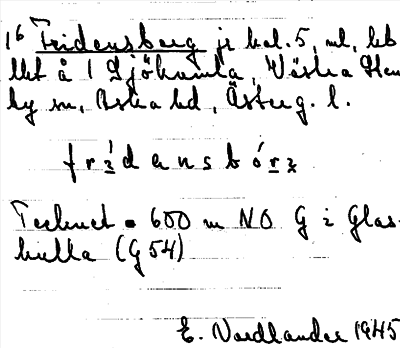 16 Fridensberg je kal. 5, ml, leb
llet å 1 Sjöhamla, Västra Hen
by sn, Aska hd, Österg. l.
frídensbórz
Tecknet • 600 m NO G i Glas-
hulla (G 54)
E. Nordlander 1945